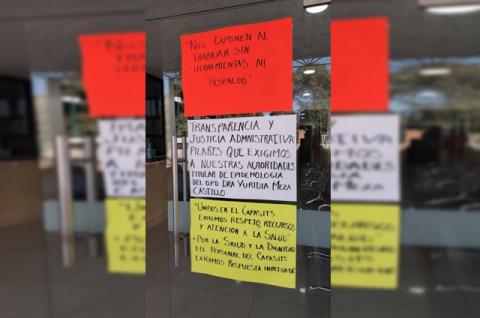 "Nos exponen al
trabajar sin
herramientas ni
respaldo"
Transparencia y
justicia administrativa
pilares que exigimos
a nuestras autoridades
titular de epidemologia
del OPD Dra Yuridia Meza
Castillo
"Unidos en el Capasits
exigimos respeto, recursos
y atención a la salud"
"Por la salud y la dignidad
del personal del Capasits
exigimos respuesta inmediata"